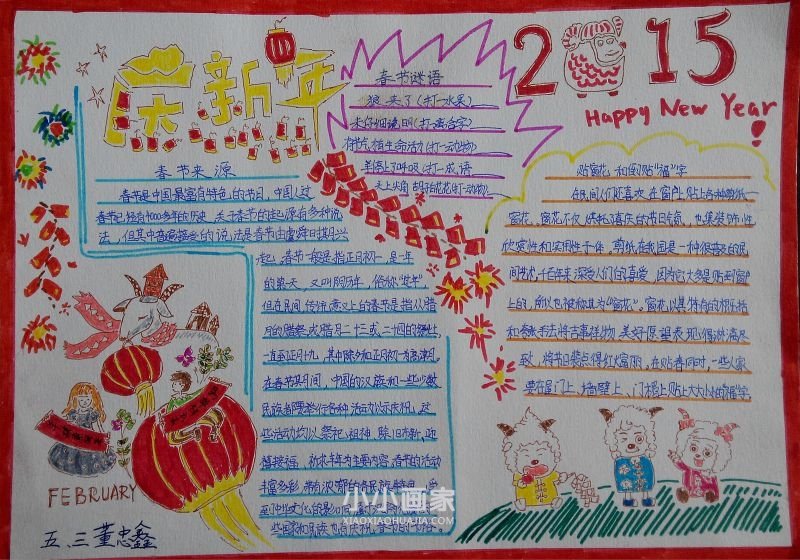 庆新年
春节来源
春节是中国最富有特色的节日，中国人过
春节已经有4000多年的历史，关于春节的起源有多种说
法，但其中普遍接受的说法是春节由虞舜时期兴
起，春节一般是指正月初一，是一年
的第一天，又叫阴历年，俗称"过年"
但在民间，传统意义上的春节是指从腊
月的腊祭或腊月二十三或二十四的祭灶，
一直至正月十九，其中除夕和正月初一为高潮。
在春节期间，中国的汉族和一些少数
民族都要举行各种活动以示庆祝，这
些活动均以祭祀祖神、除旧布新、迎
禧接福、祈求丰年为主要内容，春节的活动
丰富多彩，带有浓郁的各民族特色。受
到中华文化的影响
春节谜语
狼来了(打一水果)
有节气植生命活动(打一动物)
羊停止了呼吸(打一成语
2015
Happy New Year!
贴窗花和倒贴"福"字
在民间人们还喜欢在窗户上贴上各种剪纸——
窗花。窗花不仅烘托了喜庆的节日气氛，也集装饰性
欣赏性和实用性于一体。剪纸在我国是一种很普及的民
间艺术，千百年来深受人们的喜爱，因为它大多是贴到窗户
上的，所以也被称其为"窗花"。窗花以其特有的概括
和夸张手法将吉事祥物，美好愿望表现得淋漓尽
致，将节日装点得红火富丽。在贴春同时，一些人家
要在屋门上、墙壁上、门楣上贴上大大小小的"福"字，
FEBRUARY
五、三董忠鑫
小小画家
XIAOXIAOHUAJIA.COM